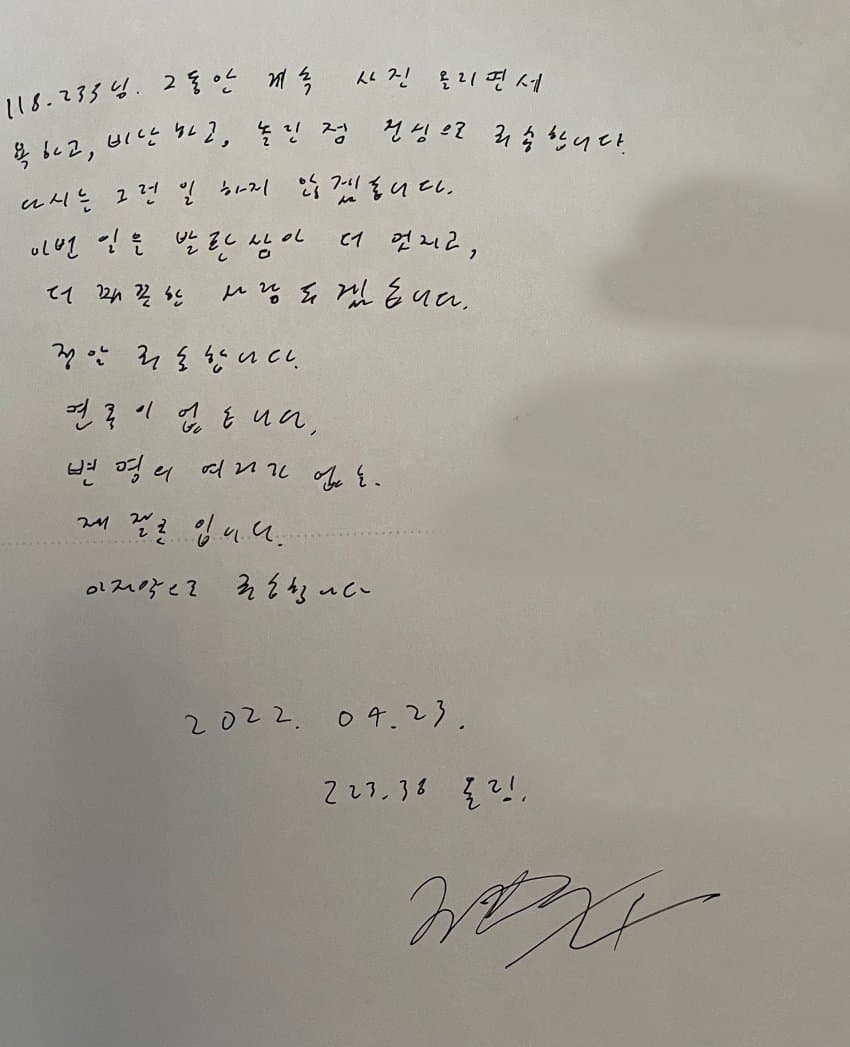 118.235님. 그동안 계속 사진 올리면서
욕하고, 비난하고, 놀린 점 진심으로 죄송합니다.
다시는 그런 일 하지 않겠습니다.
이번 일을 발판삼아 더 멋지고,
더 깨끗한 사람 되겠습니다.
정말 죄송합니다.
면목이 없습니다.
변명의 여지가 없는.
제 잘못입니다.
마지막으로 죄송합니다
2022. 04.23.
223.38 올림.